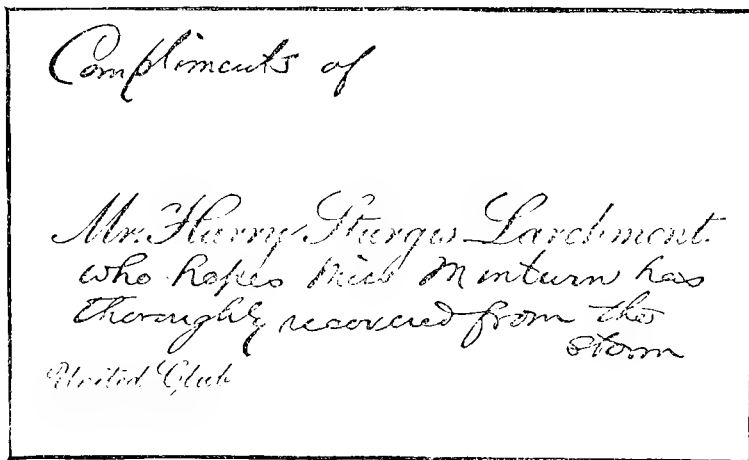 Compliments of
Mr. Harry Sturges Larchmont.
who hopes Miss Minturn has
thoroughly recovered from the
storm
United Club